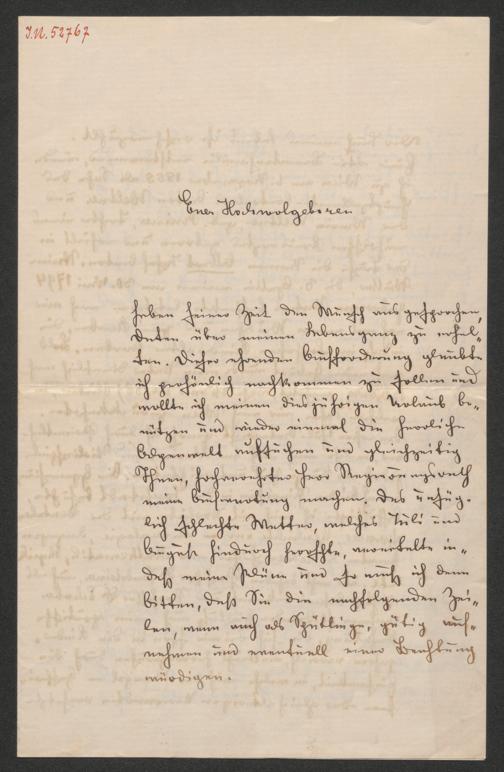 I.N. 52767
Euer Hochwolgeboren
haben seiner Zeit den Wunsch ausgesprochen,
Daten über meinen Lebensgang zu erhal-
ten. Dieser ehrenden Aufforderung glaubte
ich persönlich nachkommen zu sollen und
wollte ich meinen diesjährigen Urlaub be-
nützen und wieder einmal die herrliche
Alpenwelt aufsuchen und gleichzeitig
Ihnen, hochverehrter Herr Regierungsrath
meine Aufwartung machen. Das unsäg-
lich schlechte Wetter, welches Juli und
August hindurch herrschte, vereitelte in-
deß meine Pläne und so muß ich denn
bitten, daß Sie die nachfolgenden Zei-
len, wenn auch als Spätlinge, gütig auf-
nehmen und eventuell einer Beachtung
würdigen.